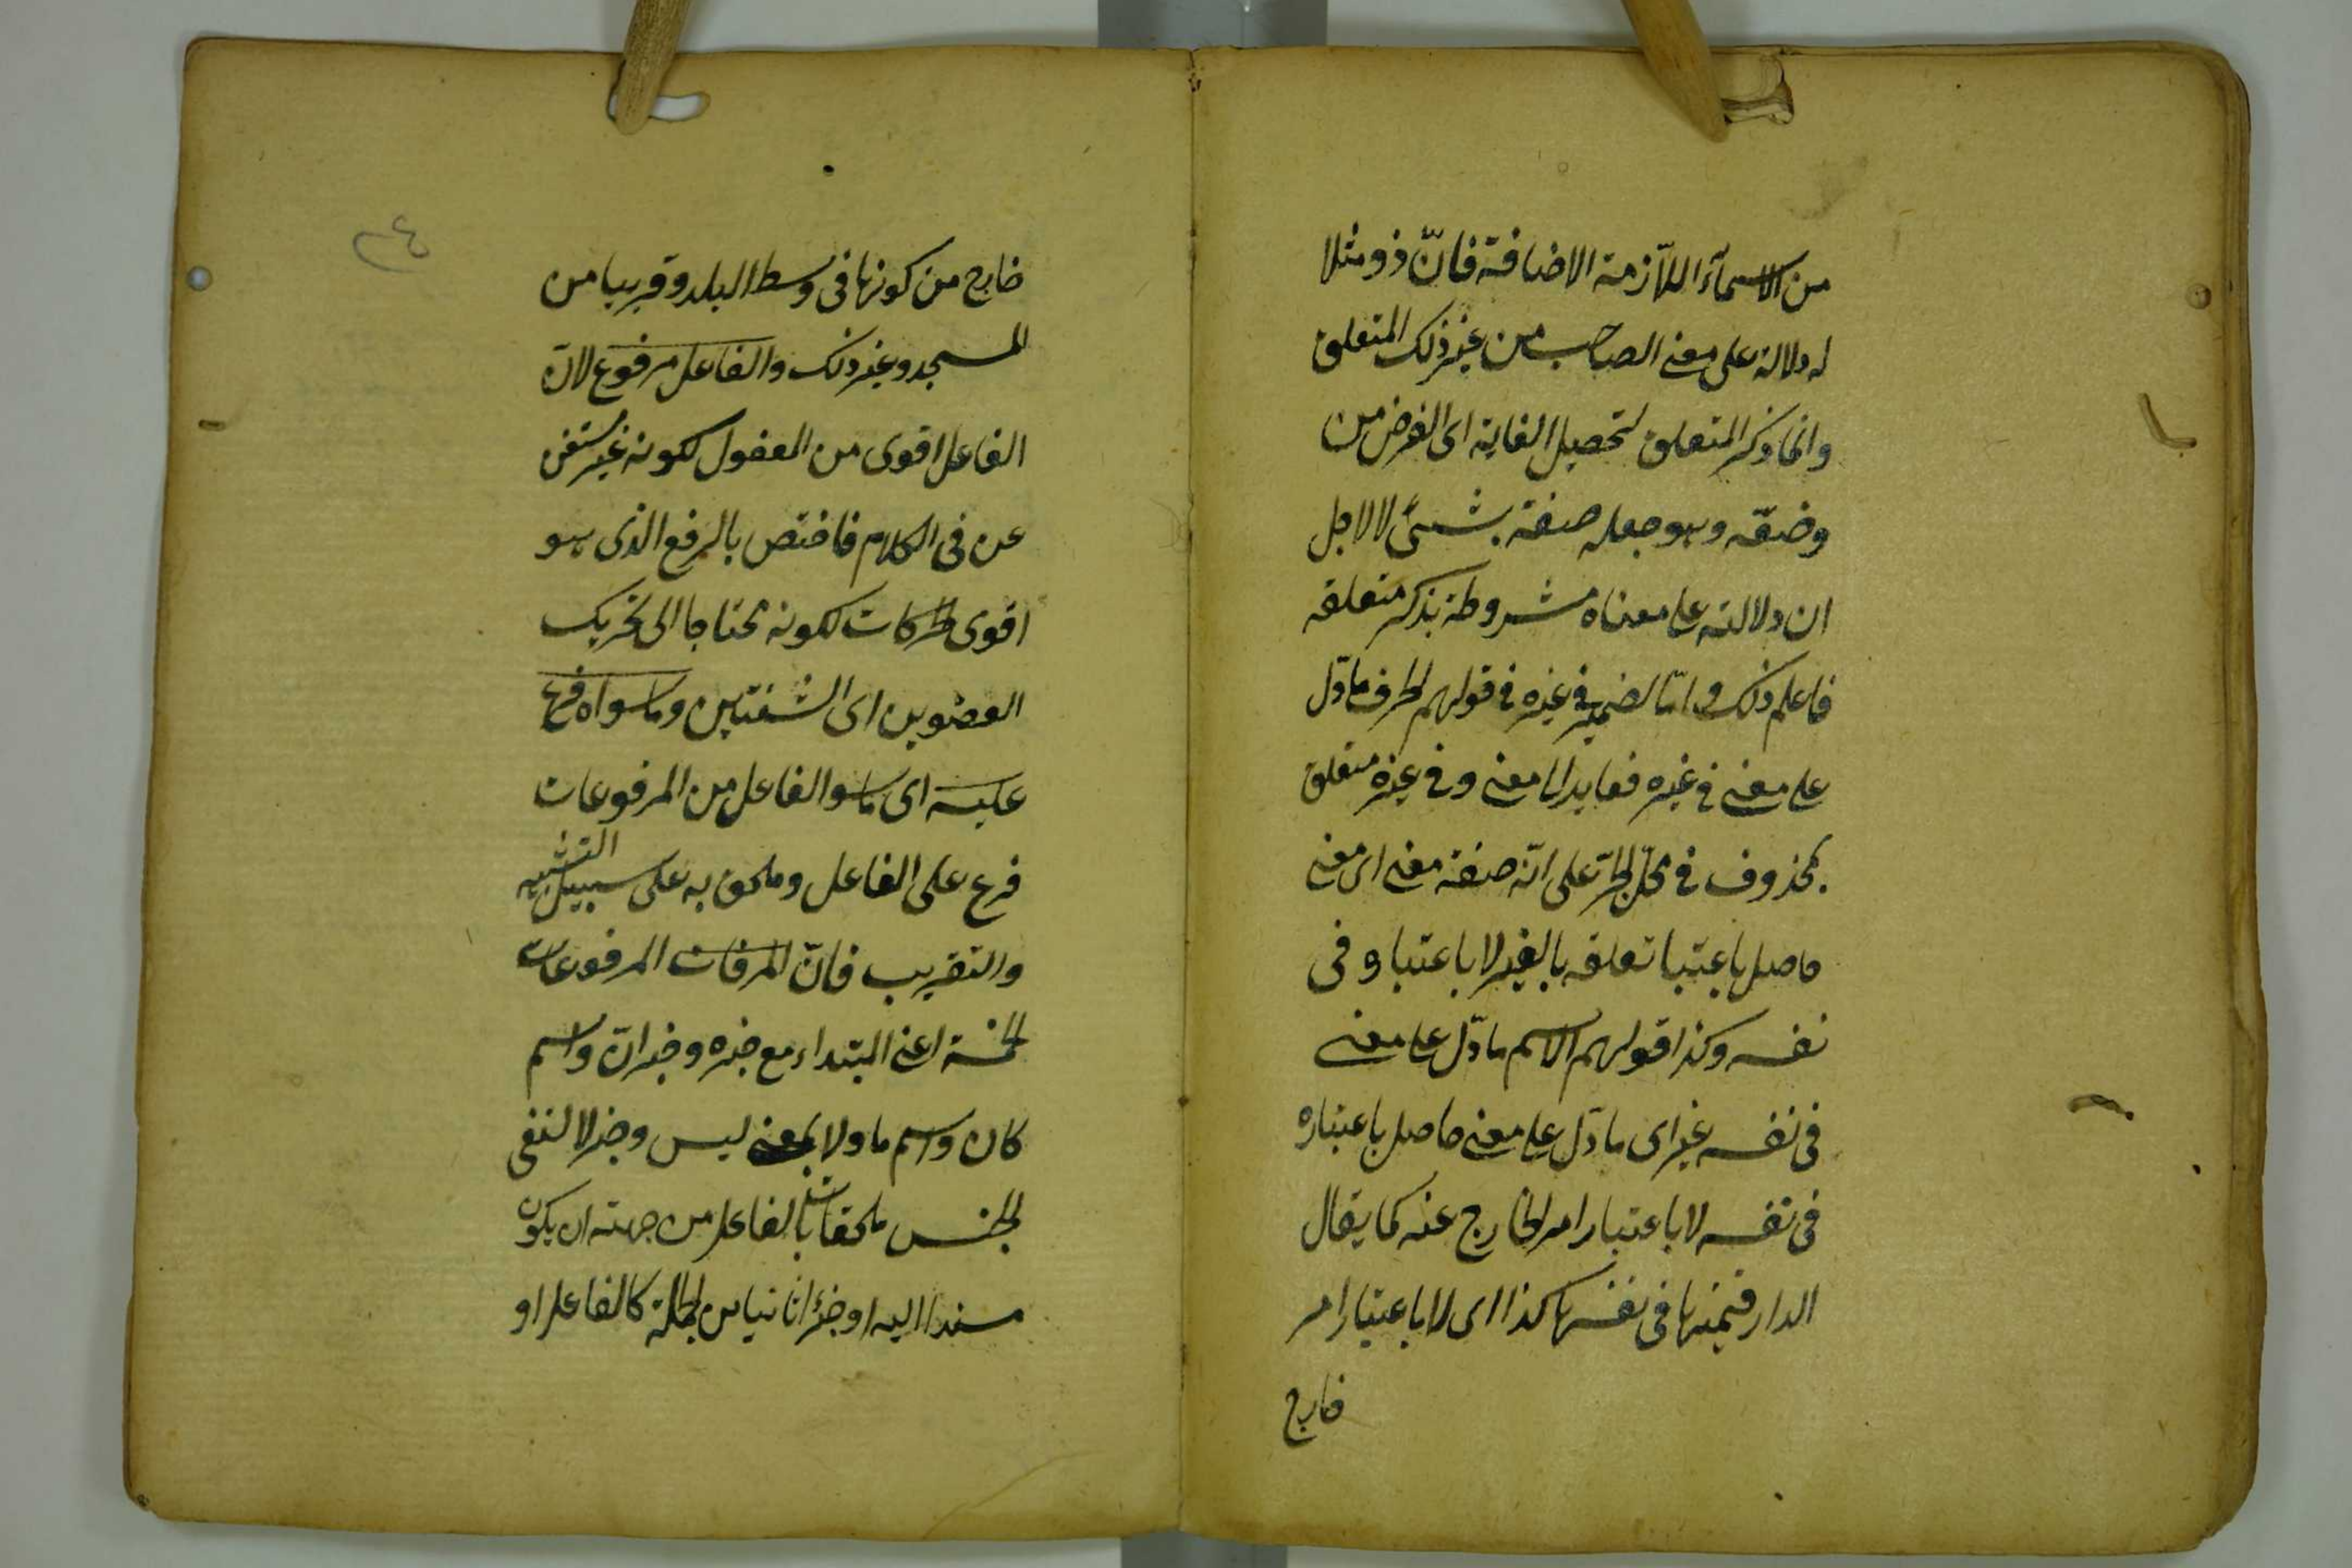 من الاسمآء اللآزمة الاضافة فانّ ذو مثلا
له دلالة على معنى الصاحب من غير ذلك المتعلق
وانما ذكر المتعلق لتحصيل الغاية اى الغرض من
وضعّه وهو جعله صفة بشئ لا لاجل
ان دلالته على معناه مشروطة بذكر متعلقه
فاعلم ذلك و امّا الضمير فى غيره فى قولهم الحرف ما دّل
على معنى فى غيره فعايد الى معنى و فى غيره متعلق
بمحذوف فى محلّ الجرّ على انّه صفة معنى اى معنى
حاصل باعتبا تعلقه بالغير لا باعتباو فى
نفسه وكذا قولهم الاسم ما دّل على معنى
فى نفسه غير اى ما دّل على معنى حاصل باعتباره
فى نفسه لا باعتبار امر الخارج عنه كما يقال
الدار قيمتها فى نفسها كذا اى لا باعتبار امر
خارج
٢٤
خارج من كونها فى وسط البلد و قريبا من
المسجد وغير ذلك والفاعل مرفوع لانّ
الفاعل اقوى من المفعول لكونه غير مستغن
عن فى الكلام فاختص بالرفع الذى هو
اقوى الحركات لكونه محتاجا الى تحريك
العضوين اى الشفتين وما سواه فرع
عليه اى ما سوا الفاعل من المرفوعات
فرع على الفاعل وملحق به على سبيل التشبيه
والتقريب فانّ المرفات المرفوعات
الخمسة اعنى المبتداء مع خبره وخبر انّ واسم
كان واسم ما ولا بمعنى ليس وخبر لا لنفى
الجنس ملحقات بالفاعل من جهته ان يكون
مسندا اليه او جزءا ثانيا من الجملة كالفاعل او